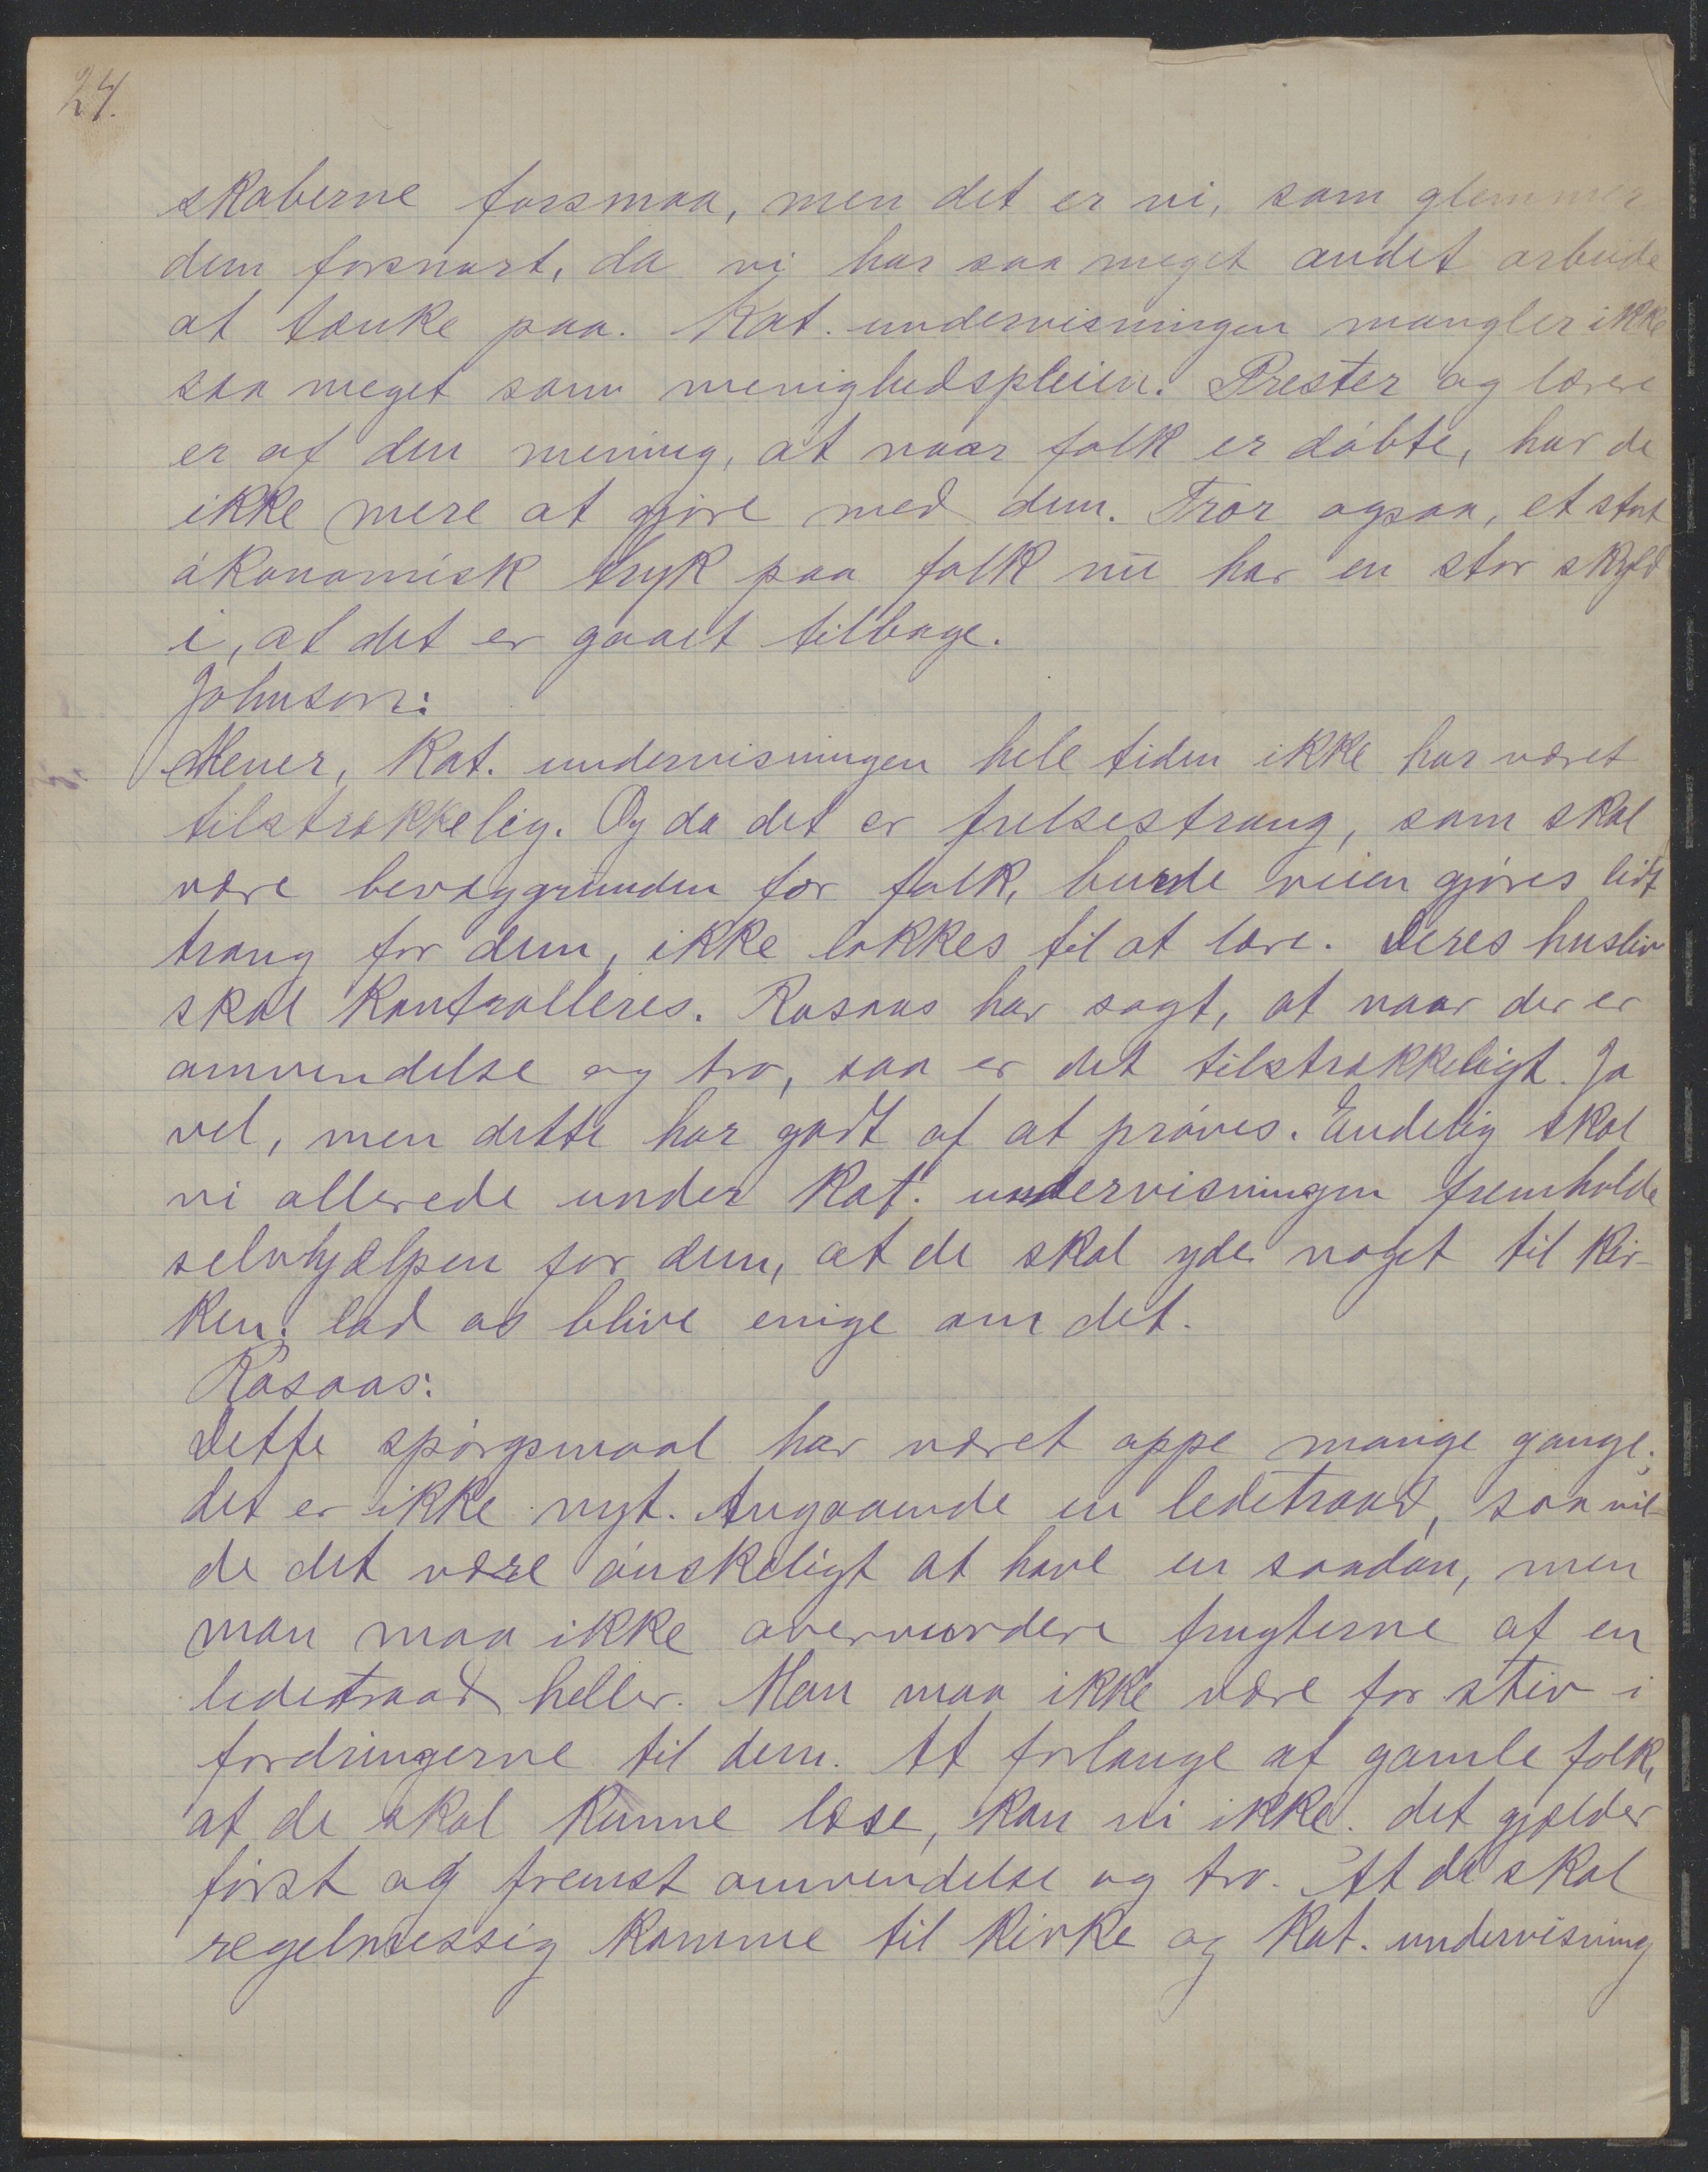 24.
skaberne forsmaa, men det er vi, som glemmer
dem forsnart, da vi har saa meget andet arbeide
at tænke paa. Kat. undervisningen mangler ikke
saa meget som menighedspleien. Prester og lærere
er af den mening, at naar folk er døbte, har de
ikke mere at gjøre med dem. Tror ogsaa, et stort
økonomisk tryk paa folk nu har en stor skyld
i, at det er gaaet tilbage.
Johnson:
Mener, Kat. undervisningen hele tiden ikke har været
tilstrækkelig. Og da det er frelsestrang, som skal
være bevæggrunden for folk, burde veien gjøres lidt
trang for dem, ikke lokkes til at lære. Deres husliv
skal kontrolleres. Rosaas har sagt, at naar der er
omvendelse og tro, saa er det tilstrækkeligt. Ja
vel, men dette har godt af at prøves. Endelig skal
vi allerede under Kat. undervisningen fremholde
selvhjælpen for dem, at de skal yde noget til kir-
ken; lad os blive enige om det.
Rosaas:
Dette spørgsmaal har været oppe mange gange;
det er ikke nyt. Angaaende en ledetraad, saa vil-
de det være ønskeligt at have en saadan, men
man maa ikke overvurdere frugterne af en
ledetraad heller. Man maa ikke være for stiv i
fordringerne til dem. At forlange af gamle folk,
at de skal kunne læse, kan vi ikke. det gjælder
først og fremst omvendelse og tro. At de skal
regelmessig komme til kirke og Kat. undervisning